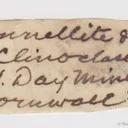 nnellite &
Clinoclas
l. Day Mine
ornwall